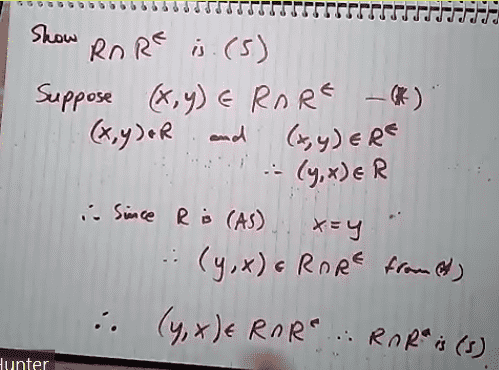 Show R ∩ R^є is (S)
Suppose (x,y) ∈ R ∩ R^є — (*)
(x,y) ∈ R and (x,y) ∈ R^є
∴ (y,x) ∈ R
∴ Since R is (AS) x = y
∴ (y,x) ∈ R ∩ R^є from (*)
∴ (y,x) ∈ R ∩ R^є ∴ R ∩ R^є is (S)
Hunter